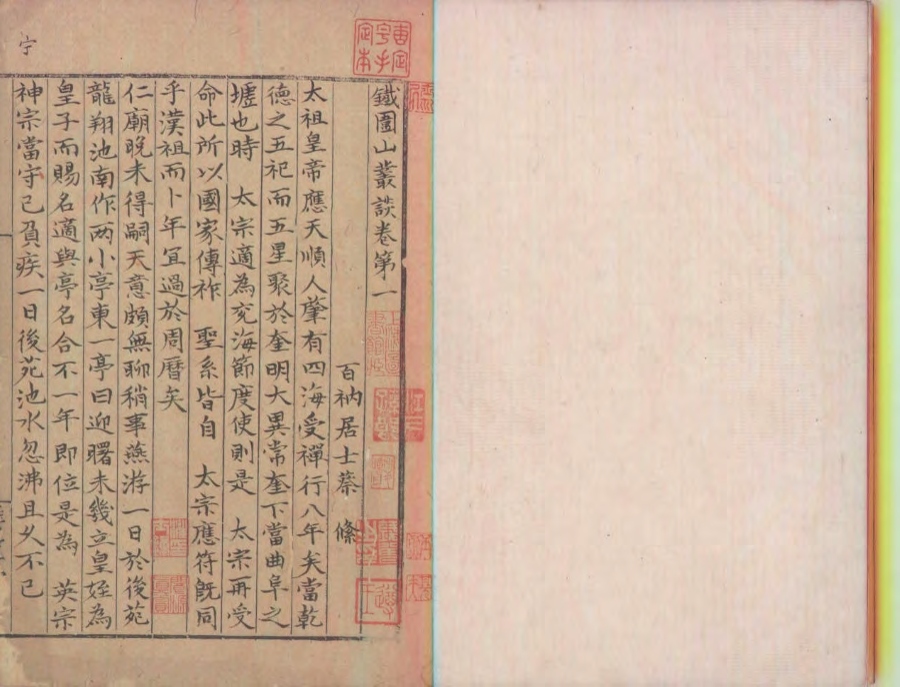 鐵圍山叢談卷第一
百衲居士蔡絛
太祖皇帝應天順人肇有四海受禪行八年矣當乾
德之五祀而五星聚於奎明大異常奎下當曲阜之
墟也時 太宗適為兖海節度使則是 太宗再受
命此所以國家傳祚 聖系皆自 太宗應符旣同
乎漢祖而卜年宜過於周曆矣
仁廟晚未得嗣天意頗無聊稍事燕游一日於後苑
龍翔池南作两小亭東一亭曰迎曙未幾立皇姪為
皇子而賜名適與亭名合不一年即位是為 英宗
神宗當守已負疾一日後苑池水忽沸且乆不已
宁